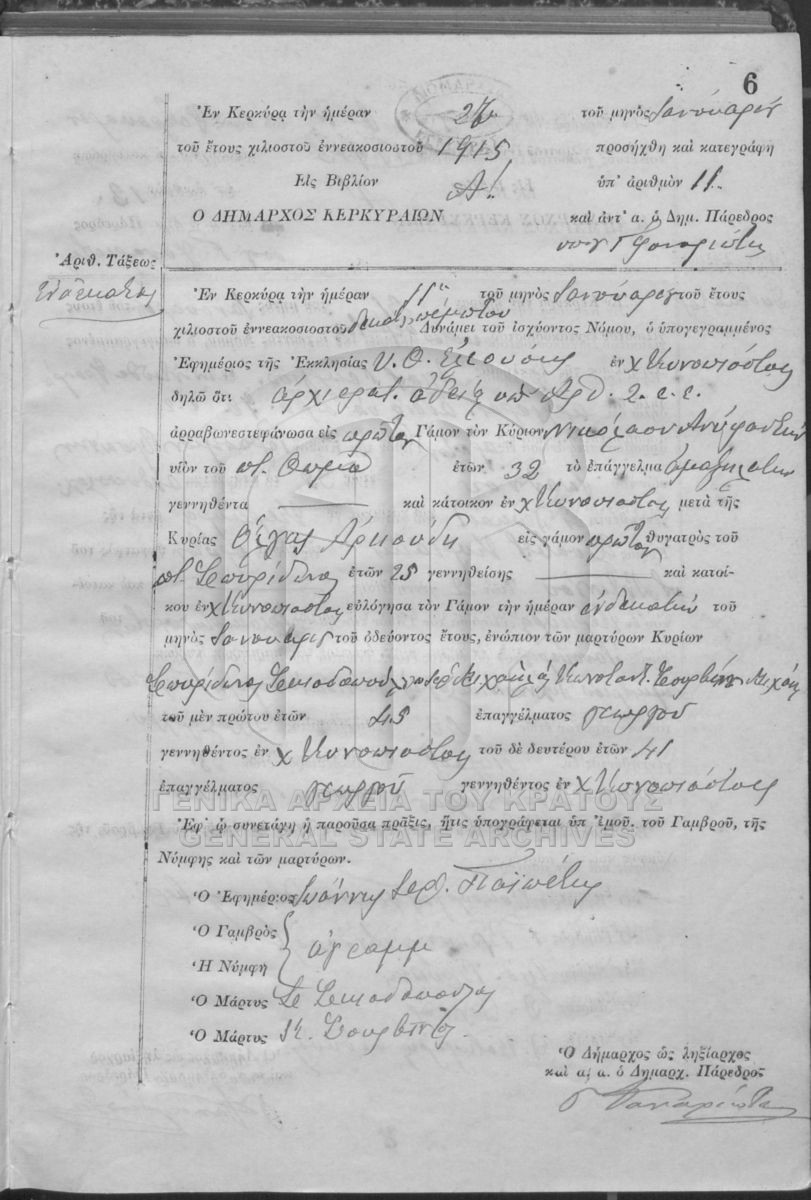 6
Ἐν Κερκύρᾳ τὴν ἡμέραν 27 τοῦ μηνὸς Ἰανουαρίου
τοῦ ἔτους χιλιοστοῦ ἐννεακοσιοστοῦ 1915 προσήχθη καὶ κατεγράφη
Εἰς Βιβλίον Α! ὑπ' ἀριθμὸν 11
Ο ΔΗΜΑΡΧΟΣ ΚΕΡΚΥΡΑΙΩΝ καὶ ἀντ' α. ὁ Δημ. Πάρεδρος
Ἀριθ. Τάξεως
Ἑνδέκατος
Ἐν Κερκύρᾳ τὴν ἡμέραν 11 τοῦ μηνὸς Ἰανουαρίου τοῦ ἔτους
χιλιοστοῦ ἐννεακοσιοστοῦ δεκάτου πέμπτου Δυνάμει τοῦ ἰσχύοντος Νόμου, ὁ ὑπογεγραμμένος
Ἐφημέριος τῆς Ἐκκλησίας Υ. Θ. Ἐλεούσης ἐν χ Κυνοπιάστας
δηλῶ ὅτι ἀρχιερατ. ἀδείᾳ ὑπ Ἀρθ. 2.
ἀρραβωνεστεφάνωσα εἰς πρῶτον Γάμον τὸν Κύριον Νικόλαον
υἱὸν τοῦ π. Θωμᾶ ἐτῶν 32 τὸ ἐπάγγελμα ἁμαξηλάτην
γεννηθέντα καὶ κάτοικον ἐν χ Κυνοπιάστας μετὰ τῆς
Κυρίας Ὄλγας Ἀρκούδη εἰς γάμον πρῶτον θυγατρὸς τοῦ
π. Σπυρίδωνος ἐτῶν 25 γεννηθείσης καὶ κατοί-
κου ἐν χ Κυνοπιάστας εὐλόγησα τὸν Γάμον τὴν ἡμέραν ἑνδεκάτην τοῦ
μηνὸς Ἰανουαρίου τοῦ ὁδεύοντος ἔτους, ἐνώπιον τῶν μαρτύρων Κυρίων
Σπυρίδωνος Κωνσταντ.
τοῦ μὲν πρώτου ἐτῶν 45 ἐπαγγέλματος γεωργοῦ
γεννηθέντος ἐν χ Κυνοπιάστας τοῦ δὲ δευτέρου ἐτῶν 41
ἐπαγγέλματος γεωργοῦ γεννηθέντος ἐν χ Κυνοπιάστας
ΓΕΝΙΚΑ ΑΡΧΕΙΑ ΤΟΥ ΚΡΑΤΟΥΣ
Ἐφ' ᾧ συνετάγη ἡ παροῦσα πρᾶξις, ἥτις ὑπογράφεται ὑπ' ἐμοῦ. τοῦ Γαμβροῦ, τῆς
GENERAL STATE ARCHIVES
Νύμφης καὶ τῶν μαρτύρων.
Ὁ Ἐφημέριος Ἰωάννης
Ὁ Γαμβρὸς
ἀγραμμ
Ἡ Νύμφη
Ὁ Μάρτυς
Ὁ Μάρτυς Κ.
Ὁ Δήμαρχος ὡς ληξίαρχος
καὶ α. α. ὁ Δημαρχ. Πάρεδρος